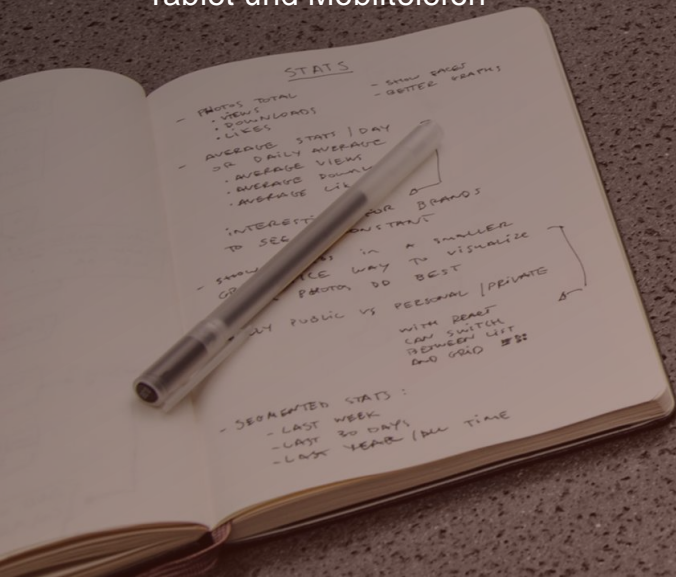 Tablet und Mobiltelefon
STATS
- PHOTOS TOTAL
• VIEWS
• DOWNLOADS
• LIKES
- SHOW FACES
- BETTER GRAPHS
- AVERAGE STATS / DAY
OR DAILY AVERAGE
• AVERAGE VIEWS
• AVERAGE
• AVERAGE
FOR BRANDS
TO SEE
- SHOW IN A SMALLER
WAY TO VISUALIZE
PHOTOS DO BEST
PUBLIC VS PERSONAL / PRIVATE
WITH REACT
CAN SWITCH
BETWEEN LIST
AND GRID
- SEGMENTED STATS :
- LAST WEEK
- LAST 30 DAYS
- LAST YEAR / ALL TIME